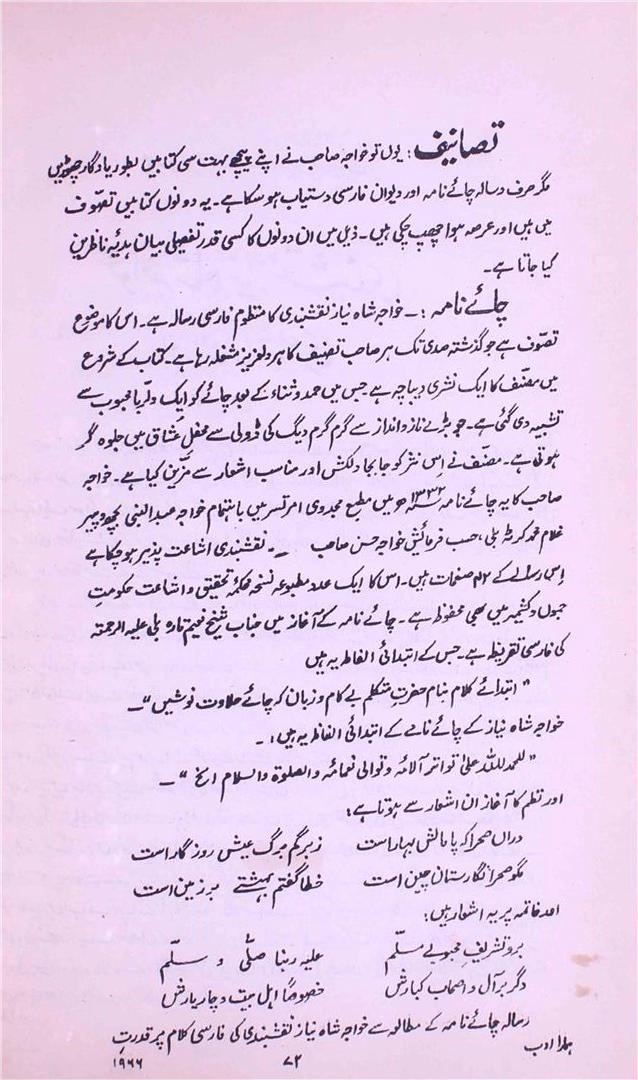 تصانیف : یوں تو خواجہ صاحب نے اپنے پیچھے بہت سی کتابیں بطور یادگار چھوڑیں
مگر صرف رسالہ چائے نامہ اور دیوان فارسی دستیاب ہو سکا ہے۔ یہ دونوں کتابیں تصوّف
میں ہیں اور عرصہ ہوا چھپ چکی ہیں۔ ذیل میں ان دونوں کا کسی قدر تفصیلی بیان ہدیۂ ناظرین
کیا جاتا ہے۔
چائے نامہ :۔ خواجہ شاہ نیاز نقشبندی کا منظوم فارسی رسالہ ہے۔ اس کا موضوع
تصوّف ہے جو گذشتہ صدی تک ہر صاحب تصنیف کا ہر دلعزیز مشغلہ رہا ہے۔ کتاب کے شروع
میں مصنّف کا ایک نثری دیباچہ ہے جس میں حمد و ثناء کے بعد چائے کو ایک دلربا محبوب سے
تشبیہ دی گئی ہے۔ جو بڑے ناز و انداز سے گرم گرم دیگ کی ڈولی سے محفلِ عشاق میں جلوہ گر
ہوتی ہے۔ مصنّف نے اِس نثر کو جابجا دلکش اور مناسب اشعار سے مزّین کیا ہے۔ خواجہ
صاحب کا یہ چائے نامہ ۱۳۳۳ھ میں مطبع مجدّدی امرتسر میں باہتمام خواجہ عبدالنبی و پیر
غلام محمد حسب فرمائش خواجہ حسن صاحب نقشبندی اشاعت پذیر ہو چکا ہے
اِس رسالے کے ۲۴ صفحات ہیں۔ اس کا ایک عدد مطبوعہ نسخہ محکمۂ تحقیق و اشاعت حکومتِ
جموں و کشمیر میں بھی محفوظ ہے۔ چائے نامہ کے آغاز میں جناب شیخ نعیم تارہ بلی علیہ الرحمتہ
کی فارسی تقریظ ہے۔ جس کے ابتدائی الفاظ یہ ہیں
" ابتدائے کلام بنام حضرتِ متکلم بے کام و زبان کہ چائے حلاوت نوشیں "۔
خواجہ شاہ نیاز کے چائے نامے کے ابتدائی الفاظ یہ ہیں :۔
" للحمد للّٰہ علیٰ تواتر آلائہ و توالی نعمائہ والصلوٰۃ والسلام الخ " ۔
اور نظم کا آغاز ان اشعار سے ہوتا ہے :
دراں صحرا کہ پامالش بہار است زہر گم برگ عیش روزگار است
مگو صحرا نگارستان چین است خطا گفتم بہشتے بر زمین است
اور خاتمہ پر یہ اشعار ہیں :
بروتشریف محبوبے مسلّم علیہ ربنا صلّی و سلّم
دگر بر آل و اصحاب کبارش خصوصاً اہل بیت و چار یارش
رسالہ چائے نامہ کے مطالعہ سے خواجہ شاہ نیاز نقشبندی کی فارسی کلام پر قدرتِ
ہمارا ادب ۷۲ ۱۹۶۶